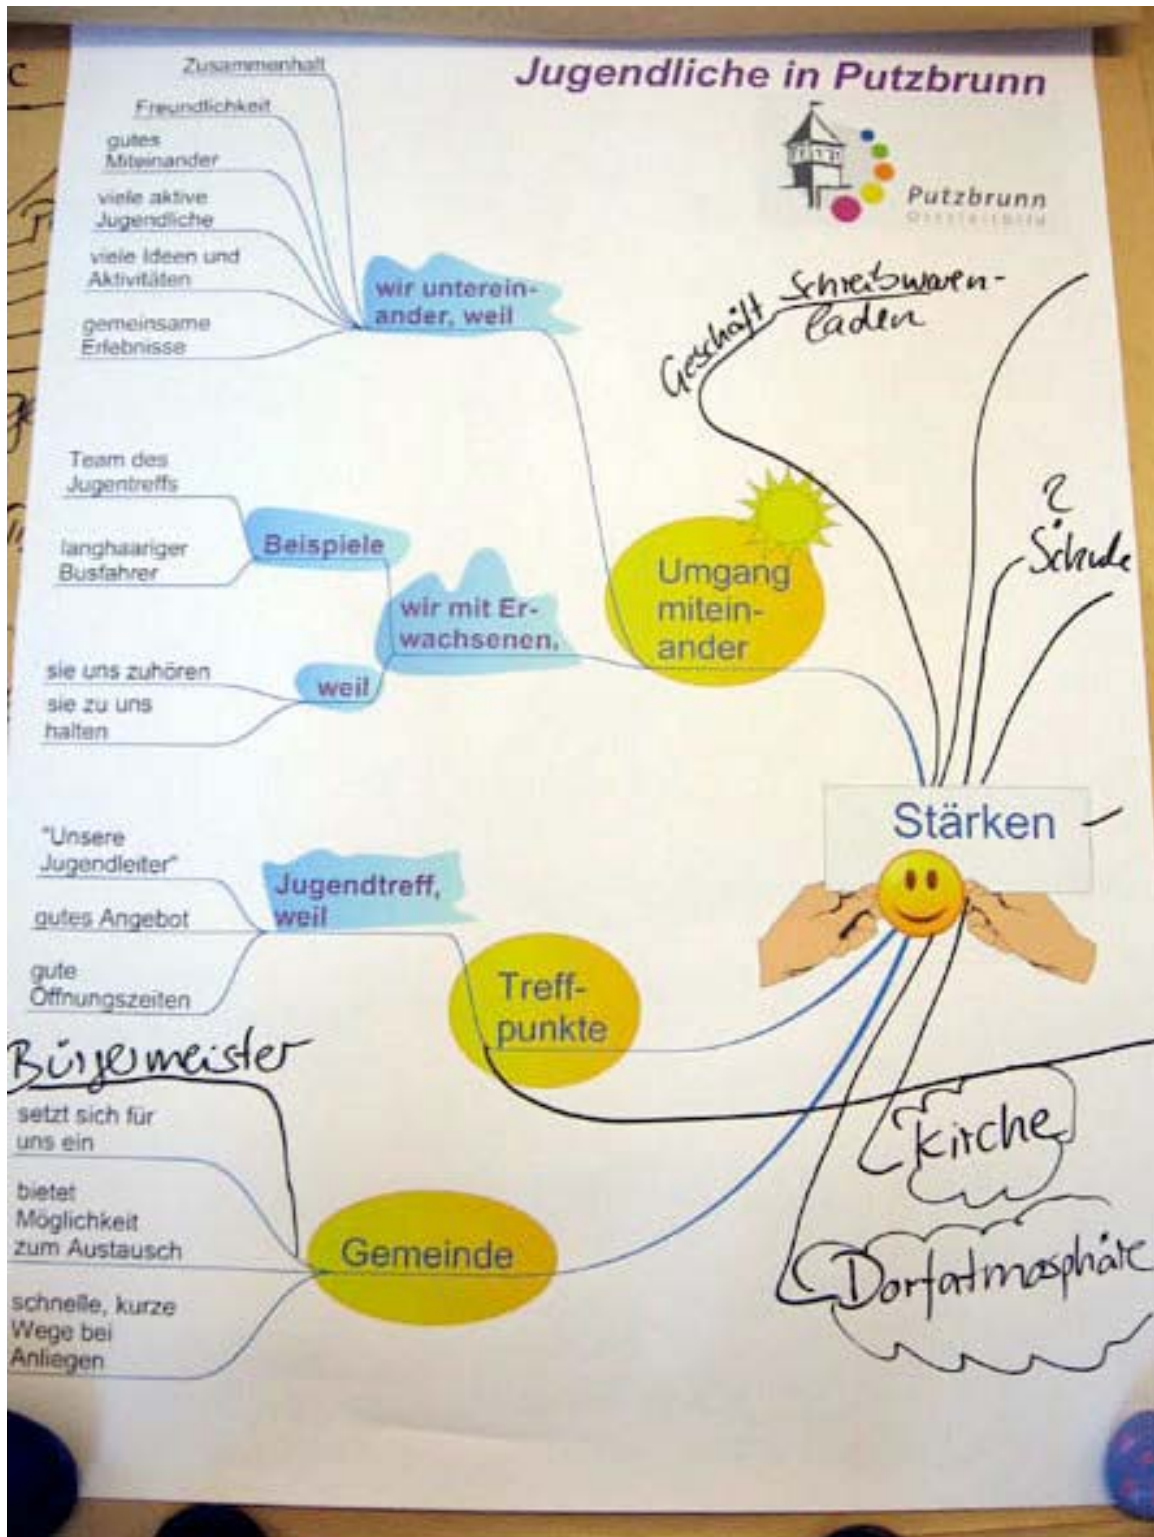 Jugendliche in Putzbrunn
Putzbrunn
Ortsleitbild
Zusammenhalt
Freundlichkeit
gutes
Miteinander
viele aktive
Jugendliche
viele Ideen und
Aktivitäten
gemeinsame
Erlebnisse
wir unterein-
ander, weil
Geschäft
Schreibwaren-
laden
Team des
Jugentreffs
langhaariger
Busfahrer
Beispiele
wir mit Er-
wachsenen,
weil
sie uns zuhören
sie zu uns
halten
Umgang
mitein-
ander
?
Schule
Stärken
"Unsere
Jugendleiter"
gutes Angebot
gute
Öffnungszeiten
Jugendtreff,
weil
Treff-
punkte
Bürgermeister
setzt sich für
uns ein
bietet
Möglichkeit
zum Austausch
schnelle, kurze
Wege bei
Anliegen
Gemeinde
Kirche
Dorfatmosphäre